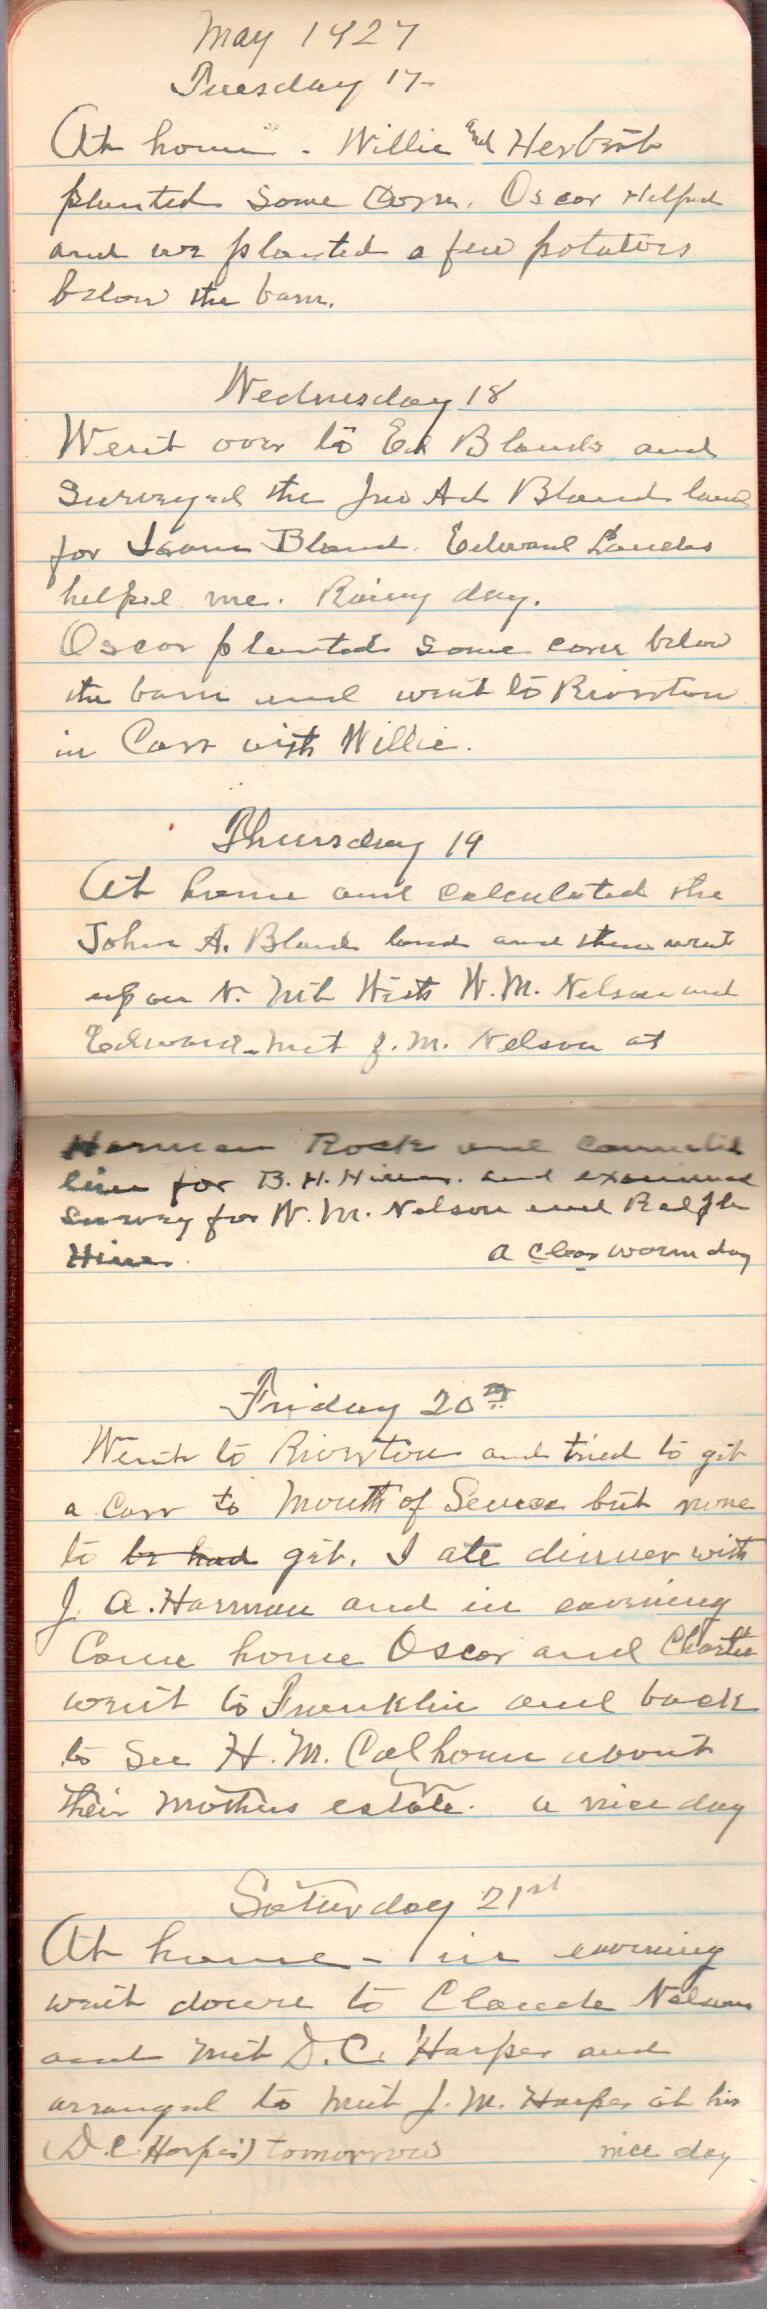 May 1927
Tuesday 17-
At home - Willie and Herbert
planted some corn. Oscar Helped
and we planted a few potatoes
below the barn.
Wednesday 18
Went over to Ed Blands and
surveyed the Jno Ad Bland land
for Isom Bland. Edward Landes
helped me. Rainy day.
Oscar planted some corn below
the barn and went to Riverton
in Carr with Willie.
Thursday 19
At home and calculated the
John A. Bland land and then went
up on N. Mt With W. M. Nelson and
Edward - met J. M. Nelson at
Harman Rock and
line for B. H. Hiner. and examined
survey for W. M. Nelson and Ralph
Hiner. A clear warm day
Friday 20th
Went to Riverton and tried to git
a Carr to Mouth of Seneca but none
to be had git. I ate dinner with
J. A. Harman and in evening
Came home Oscar and Charles
went to Franklin and back
to See H. M. Calhoun about
their Mothers estate. a nice day
Saturday 21st
At home - in evening
went down to Claude Nelsons
and met D. C. Harper and
arranged to meet J. M. Harper at his
(D. C. Harper's) tomorrow nice day